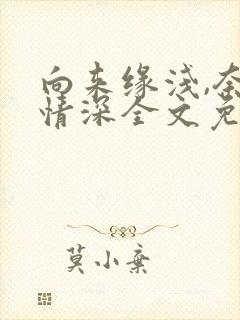 向来缘浅,奈
情深全文免
莫小弃